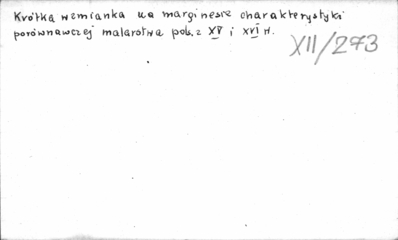 Krótka wzmianka na marginesie charakterystyki
porównawczej malarstwa pols. z XV i XVI w.
XII/273